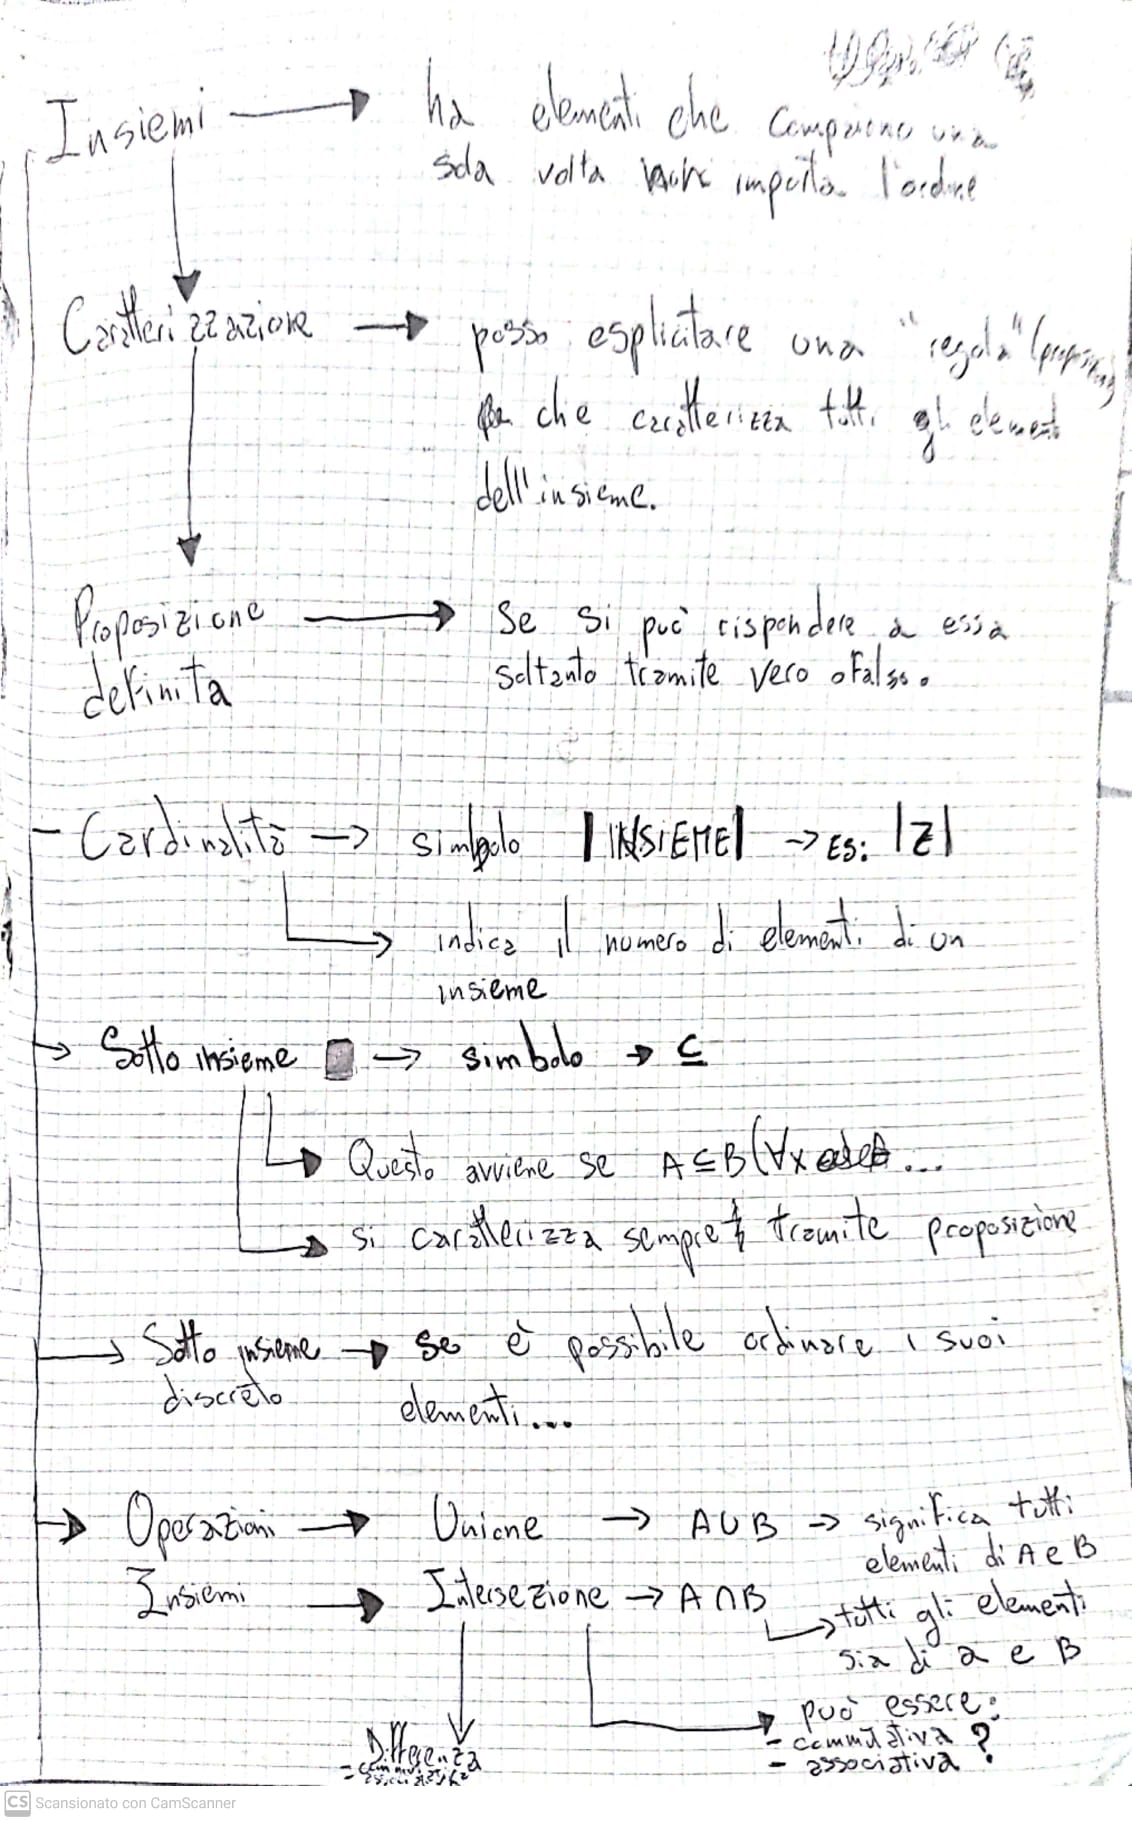 Insiemi → ha elementi che compaiono una
sola volta non importa l'ordine
Caratterizzazione → posso esplicitare una "regola" (proposizione)
che caratterizza tutti gli elementi
dell'insieme.
Proposizione → Se si può rispondere a essa
definita soltanto tramite vero o Falso.
- Cardinalità → simbolo |INSIEME| → ES: |Z|
→ indica il numero di elementi di un
insieme
→ Sotto insieme → simbolo → ⊆
→ Questo avviene se A⊆B (∀x ...
→ si caratterizza sempre tramite proposizione
→ Sotto insieme → se è possibile ordinare i suoi
discreto elementi...
→ Operazioni → Unione → A∪B → significa tutti
elementi di A e B
Insiemi → Intersezione → A∩B
→ tutti gli elementi
sia di a e B
→ può essere:
- commutativa ?
- associativa
Differenza